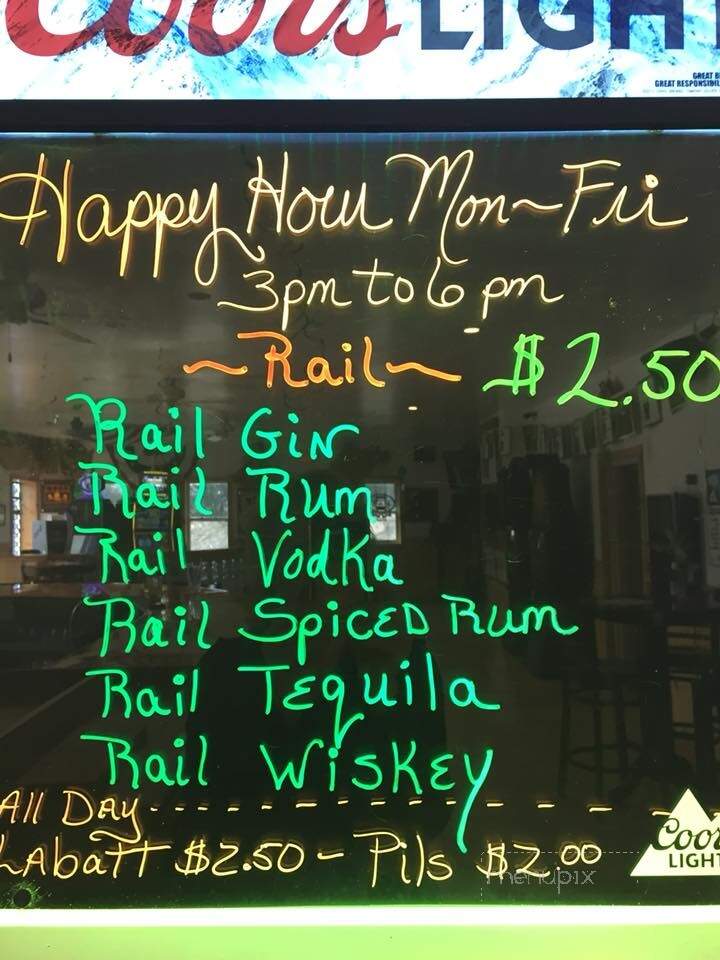 Coors LIGHT
GREAT B
GREAT RESPONSIBIL
Happy Hour Mon~Fri
3pm to 6 pm
~Rail~ $2.50
Rail Gin
Rail Rum
Rail Vodka
Rail Spiced Rum
Rail Tequila
Rail Wiskey
All Day
Labatt $2.50 - Pils $2.00
Coors
LIGHT
menupix